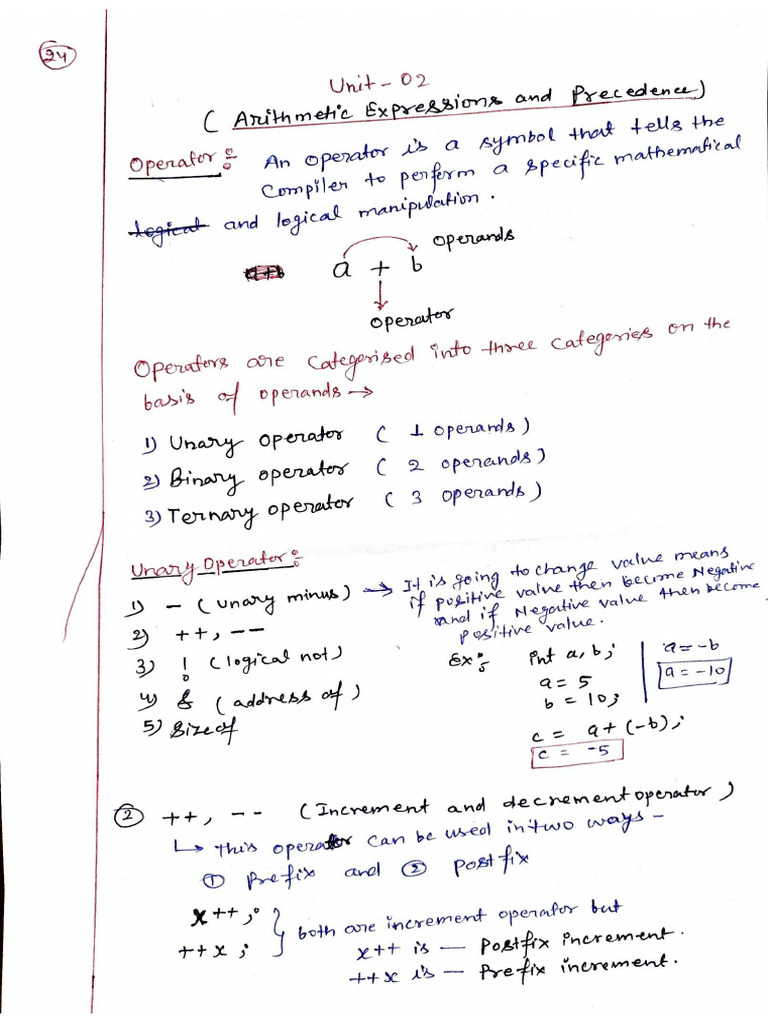 24
Unit - 02
( Arithmetic Expressions and Precedence)
Operator :- An operator is a symbol that tells the
Compiler to perform a specific mathematical
logical and logical manipulation.
a+b a + b operands
operator
Operators are categorised into three categories on the
basis of operands →
1) Unary operator ( 1 operands )
2) Binary operator ( 2 operands )
3) Ternary operator ( 3 operands )
Unary Operator :-
1) - (unary minus) → It is going to change value means
if positive value then become Negative
and if Negative value then become
positive value.
2) ++, --
3) ! (logical not)
4) & (address of)
5) Sizeof
Ex: int a, b;
a = 5
b = 10;
c = a + (-b);
c = -5
a = -b
a = -10
② ++, -- (Increment and decrement operator)
↳ This operator can be used in two ways -
① Prefix and ② Postfix
x++;
++x; } both are increment operator but
x++ is - Postfix increment.
++x is - Prefix increment.